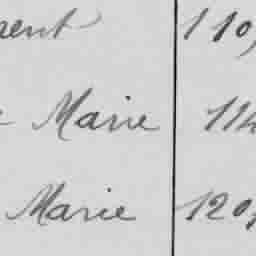 rent 110,
e Marie 114
Marie 120,